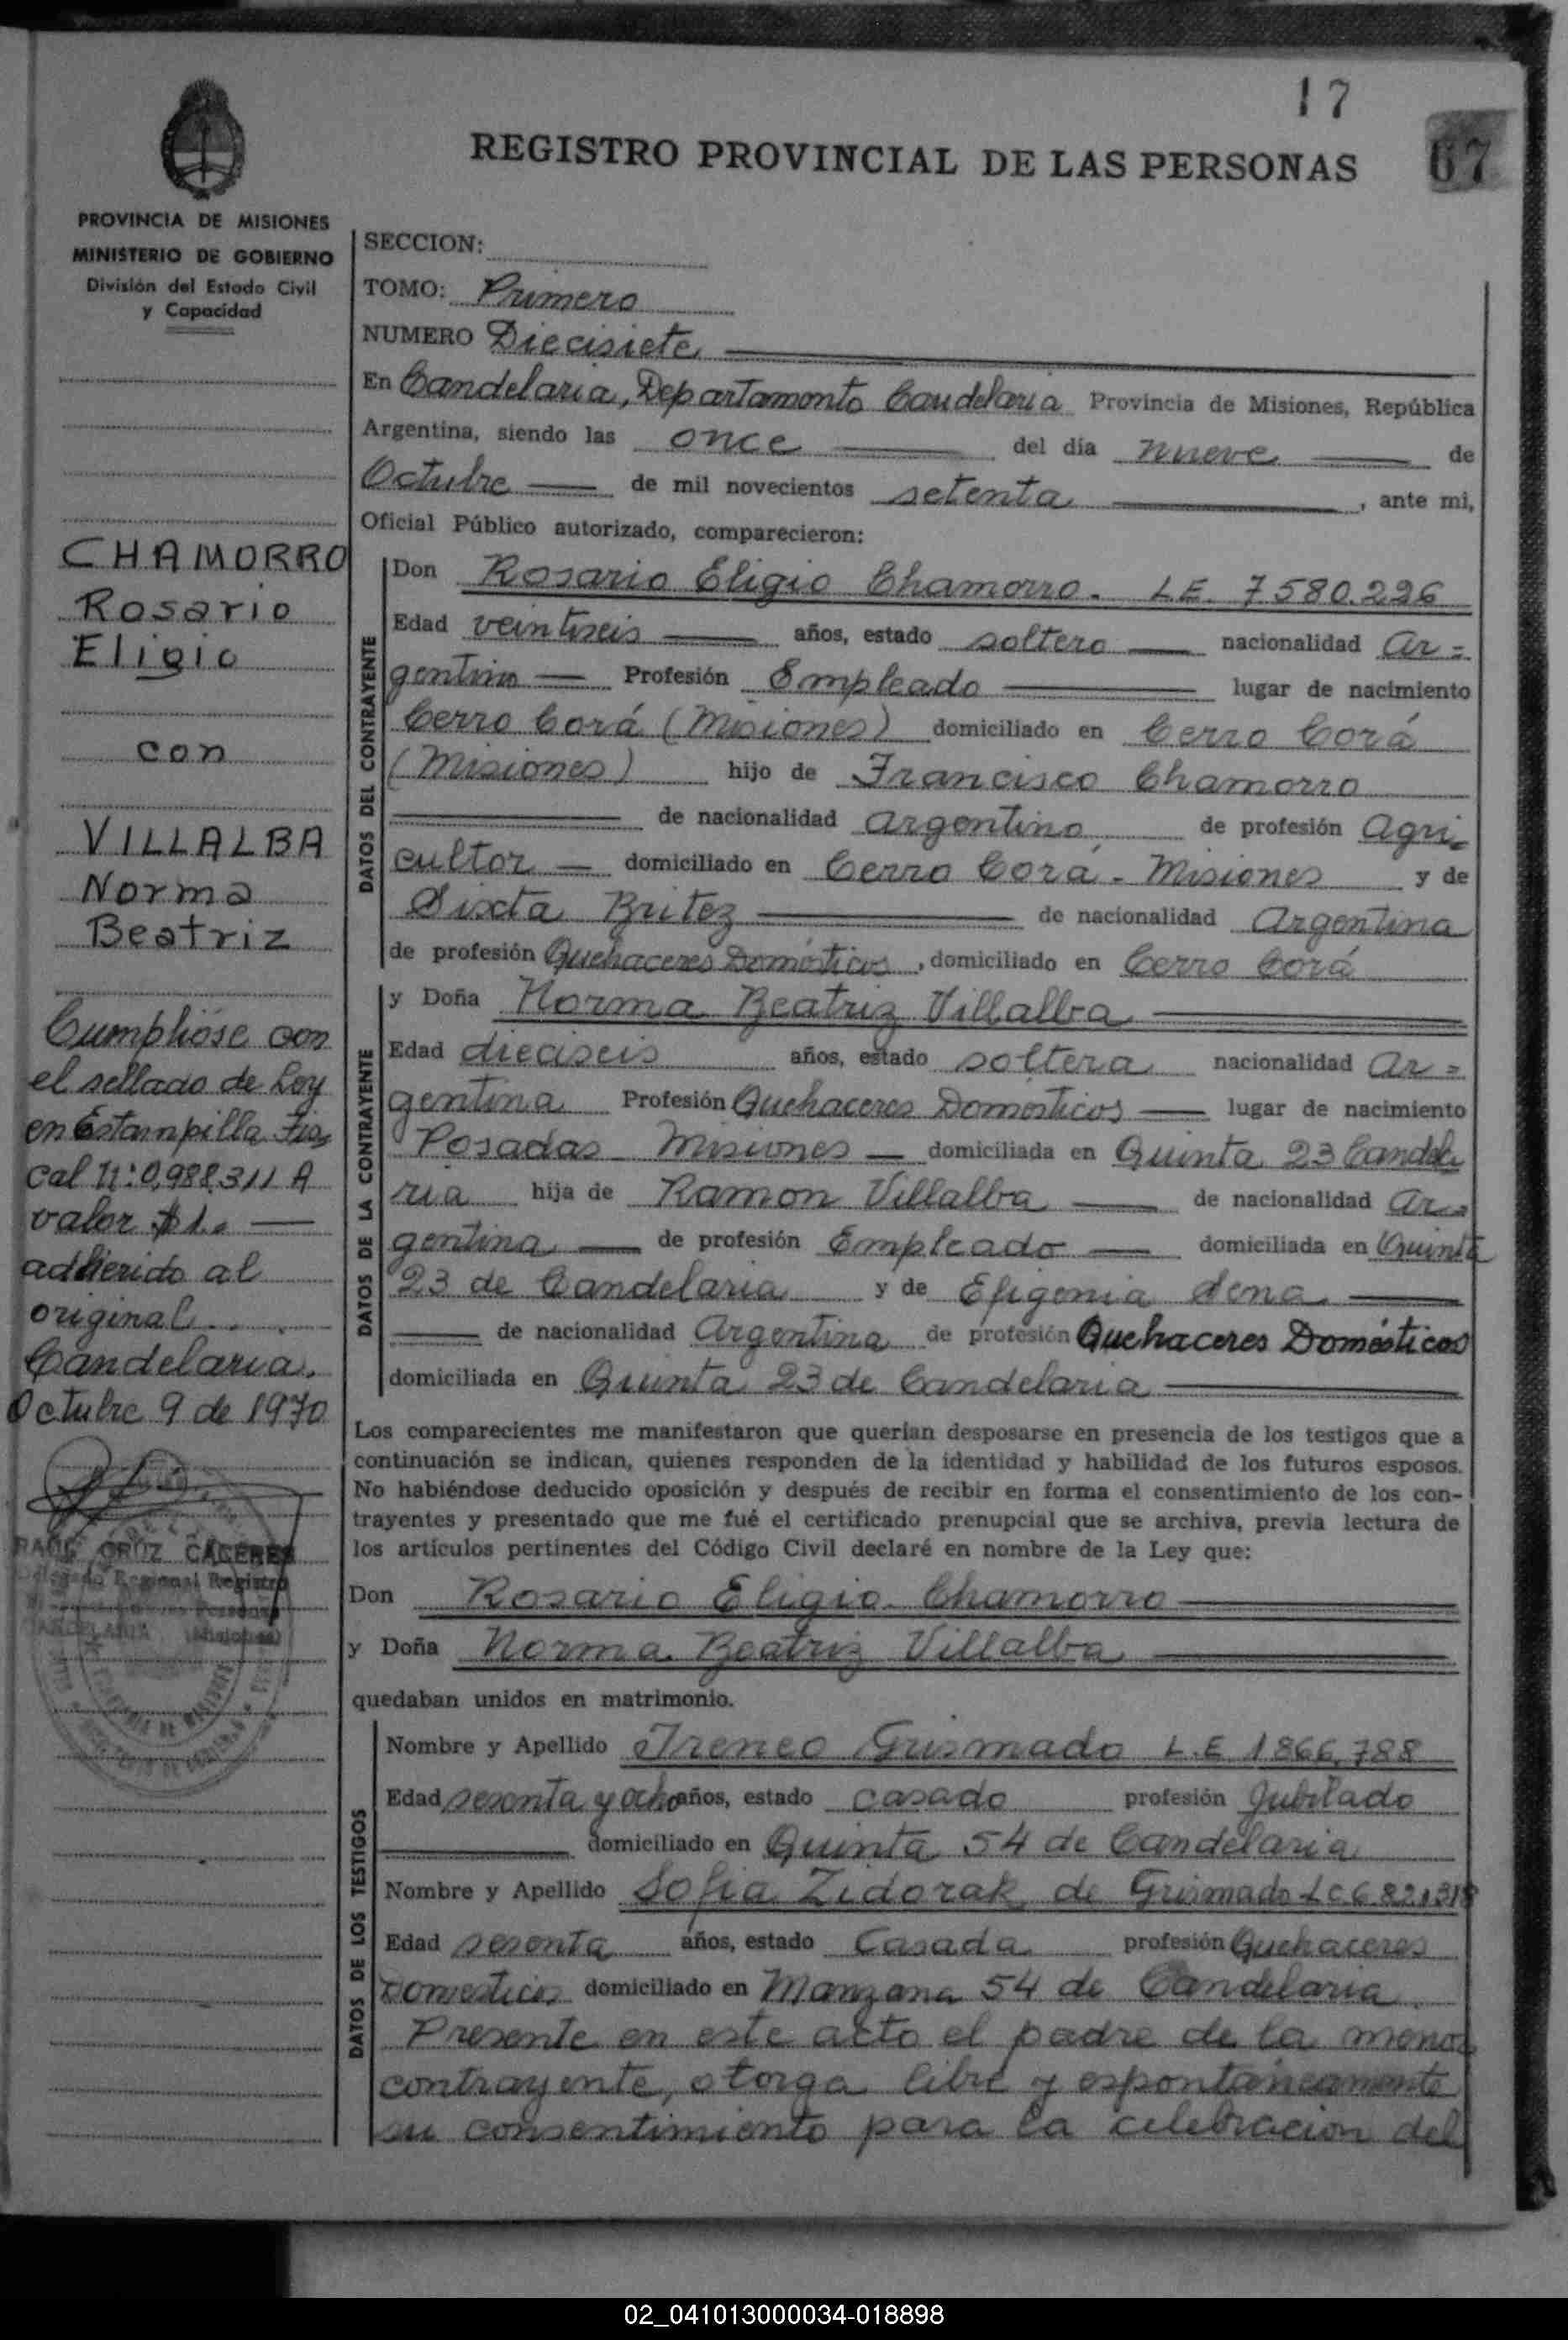 17
REGISTRO PROVINCIAL DE LAS PERSONAS
67
PROVINCIA DE MISIONES
MINISTERIO DE GOBIERNO
División del Estado Civil
y Capacidad
SECCION:
TOMO: Primero
NUMERO Diecisiete
En Candelaria, Departamento Candelaria Provincia de Misiones, República
Argentina, siendo las once del día nueve de
Octubre de mil novecientos setenta, ante mi,
Oficial Público autorizado, comparecieron:
CHAMORRO
Rosario
Eligio
con
VILLALBA
Norma
Beatriz
Cumplióse con
el sellado de Ley
en Estampilla Fis
cal N: 0,988,311 A
valor $ 1.
adherido al
original
Candelaria,
Octubre 9 de 1970
RAUL CRUZ CACERES
Delegado Regional Registro
CANDELARIA (Misiones)
DATOS DEL CONTRAYENTE
Don Rosario Eligio Chamorro. L.E. 7580.226
Edad veintiseis años, estado soltero nacionalidad Ar=
gentino Profesión Empleado lugar de nacimiento
Cerro Corá (Misiones) domiciliado en Cerro Corá
(Misiones) hijo de Francisco Chamorro
de nacionalidad Argentino de profesión Agri-
cultor domiciliado en Cerro Corá - Misiones y de
Sixta Britez de nacionalidad Argentina
de profesión Quehaceres Domésticos, domiciliado en Cerro Corá
DATOS DE LA CONTRAYENTE
y Doña Norma Beatriz Villalba
Edad dieciseis años, estado soltera nacionalidad Ar=
gentina Profesión Quehaceres Domésticos lugar de nacimiento
Posadas Misiones domiciliada en Quinta 23 Candela
ria hija de Ramon Villalba de nacionalidad Ar=
gentina de profesión Empleado domiciliada en Quinta
23 de Candelaria y de Efigenia
de nacionalidad Argentina de profesión Quehaceres Domésticos
domiciliada en Quinta 23 de Candelaria
Los comparecientes me manifestaron que querían desposarse en presencia de los testigos que a
continuación se indican, quienes responden de la identidad y habilidad de los futuros esposos.
No habiéndose deducido oposición y después de recibir en forma el consentimiento de los con-
trayentes y presentado que me fué el certificado prenupcial que se archiva, previa lectura de
los artículos pertinentes del Código Civil declaré en nombre de la Ley que:
Don Rosario Eligio Chamorro
y Doña Norma Beatriz Villalba
quedaban unidos en matrimonio.
DATOS DE LOS TESTIGOS
Nombre y Apellido Ireneo Grismado L.E 1866,788
Edad sesenta y ocho años, estado casado profesión Jubilado
domiciliado en Quinta 54 de Candelaria
Nombre y Apellido Sofia Zidorak de Grismado L C 6.821318
Edad sesenta años, estado Casada profesión Quehaceres
Domesticos domiciliado en Manzana 54 de Candelaria
Presente en este acto el padre de la menor
contrayente, otorga libre y espontáneamente
su consentimiento para la celebracion del
02_041013000034-018898